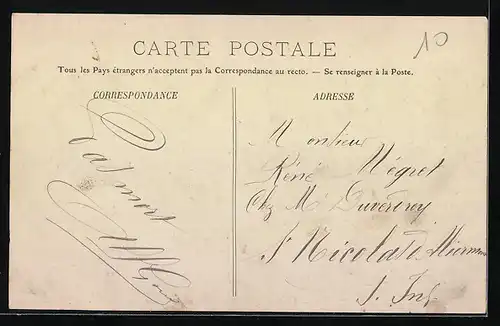 10
CARTE POSTALE
Tous les Pays étrangers n'acceptent pas la Correspondance au recto. — Se renseigner à la Poste.
CORRESPONDANCE
ADRESSE
Pas mort
Monsieur
René Négret
Chez Mr Duvertrey
St Nicolas d'Aliermont
S. Inf